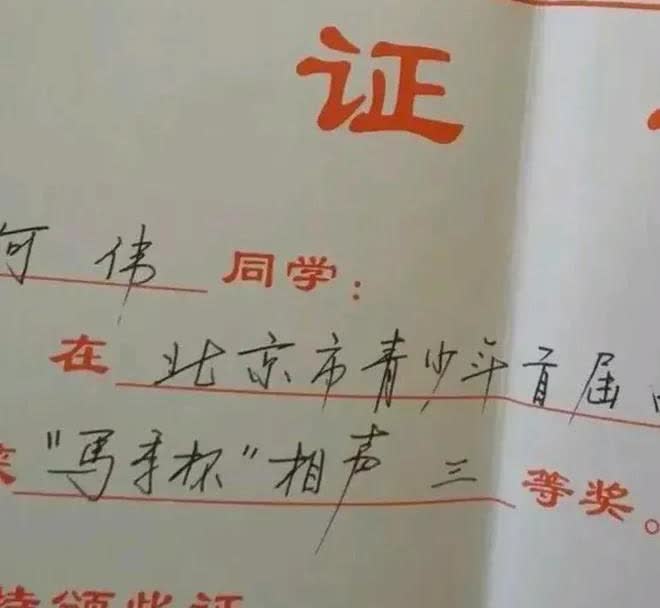 证
何伟同学：
在北京市青少年首届
"马季杯"相声三等奖。
特颁此证